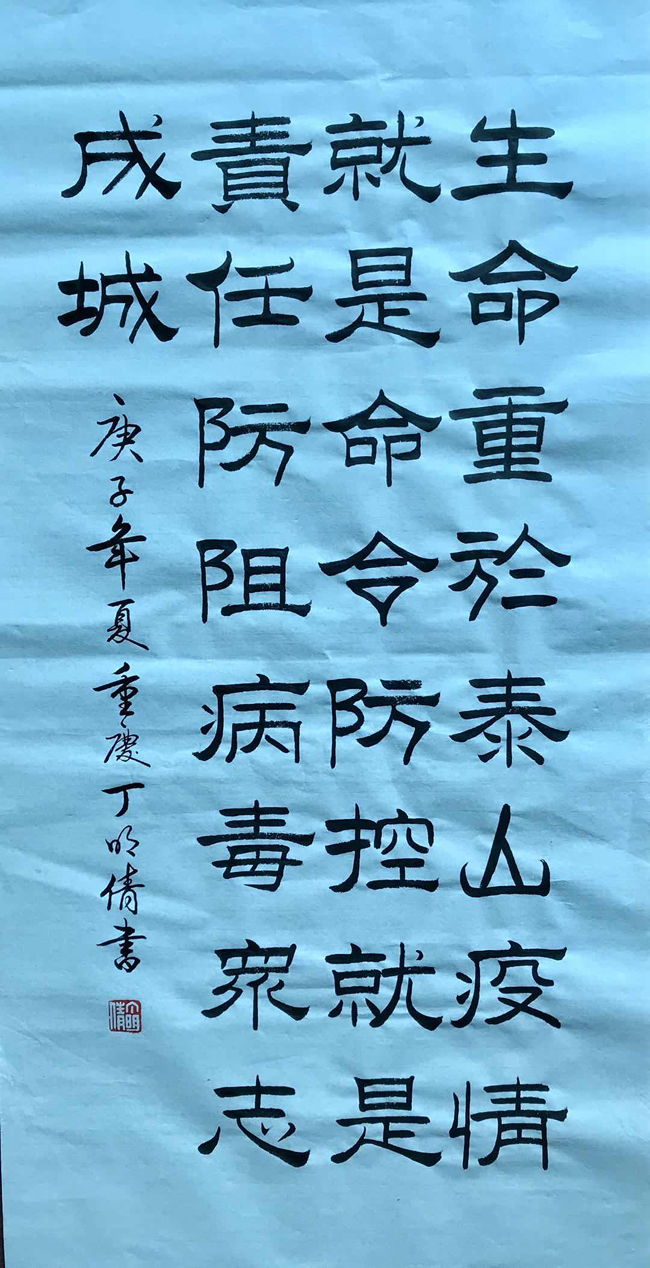 生命重於泰山疫情
就是命令防控就是
責任防阻病毒眾志
成城
庚子年夏重慶丁明倩書